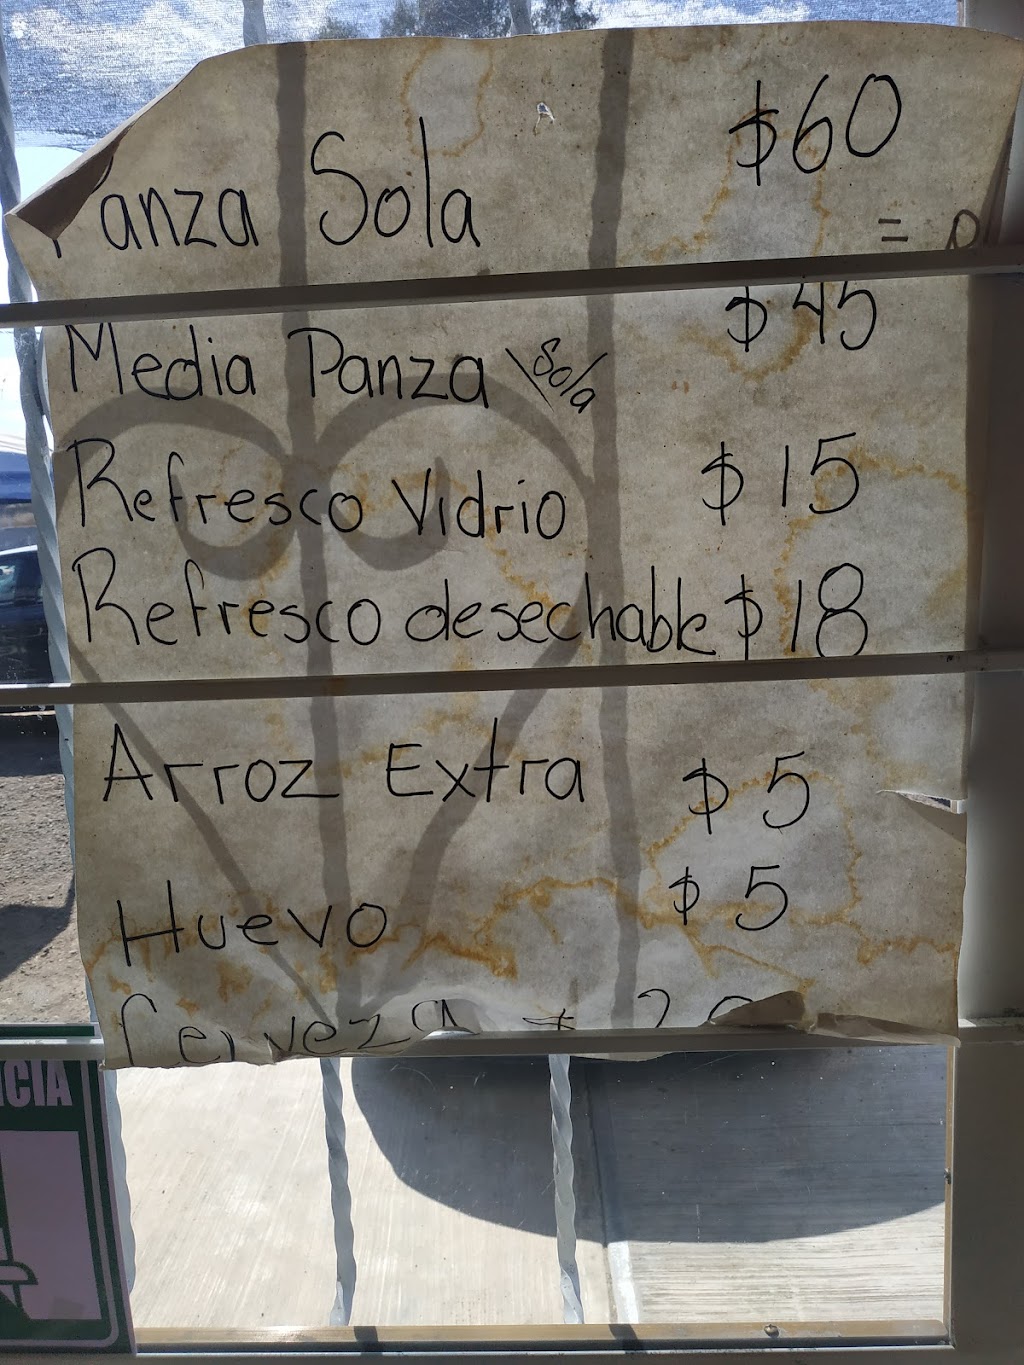 Panza Sola $60
Media Panza Sola $45
Refresco Vidrio $15
Refresco desechable $18
Arroz Extra $5
Huevo $5
Cerveza $